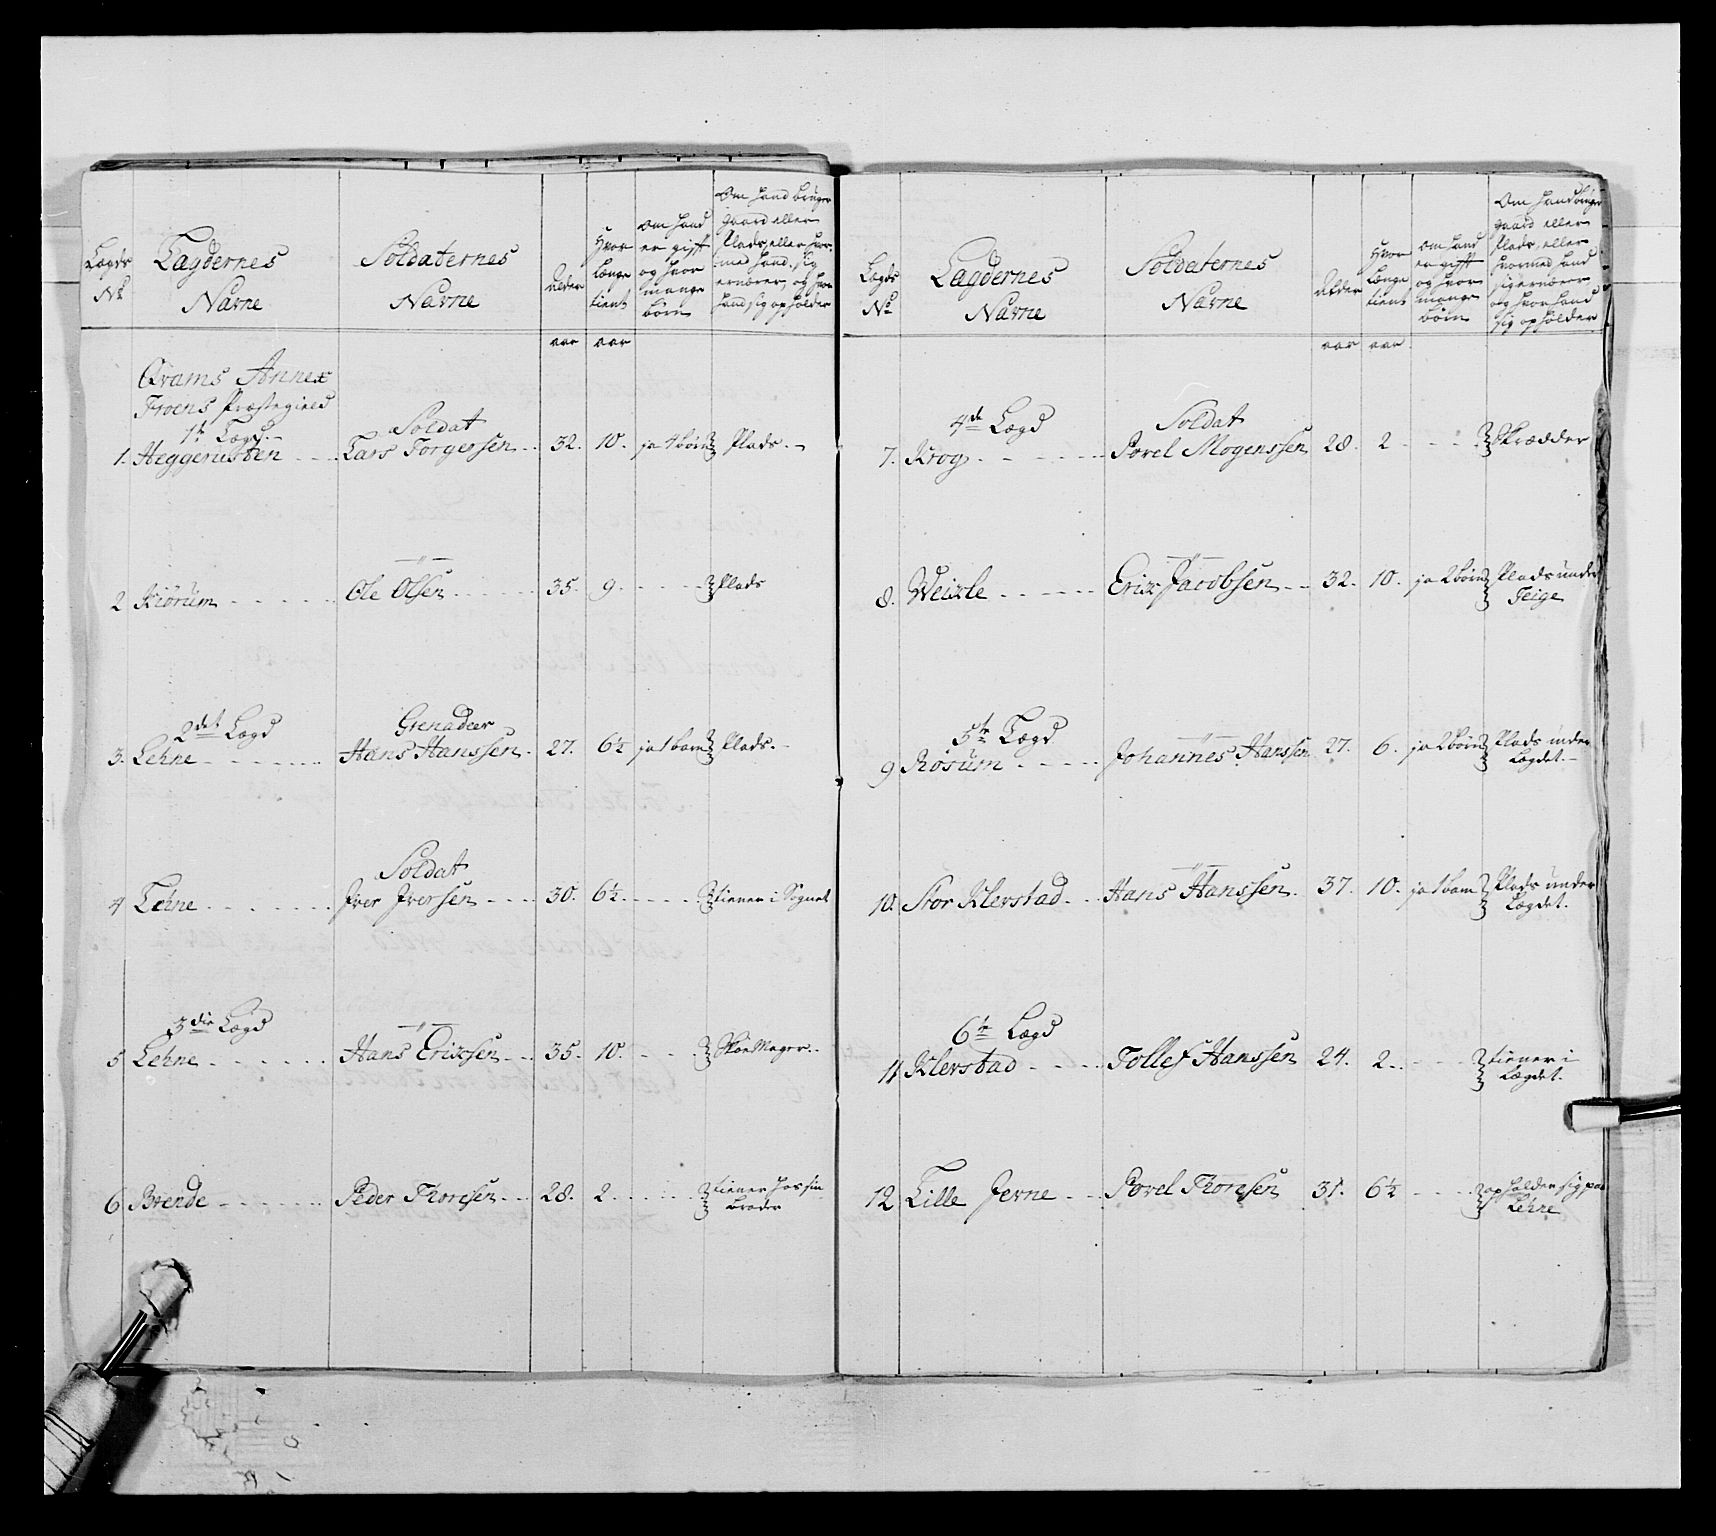 Lægds
No
Lægdernes
Navne
Soldaternes
Navne
Alder
Hvor
længe
tient
om hand
er gift
og hvor
mange
børn
Om hand bruger
gaard eller
Plads, eller hvor-
med hand sig
ernærer, og hvor
hand sig opholder
aar aar
Qvams Annex
Froens Præstegield
1te Lægd.
Soldat
1. Heggerusten Lars Torgerssen 32. 10. ja 4 børn Plads.
2 Kiørum Ole Olsen 35. 9. Plads
2det Lægd Grenadeer
3. Lehne Hans Hanssen. 27. 6½ ja 1 barn Plads.
Soldat
4 Lehne Iver Iversen 30. 6½ tiener i Sognet
3die Lægd
5 Lehne Hans Erichsen 35. 10. Skoemager.
6 Brende Peder Thoresen 28. 2. tiener hos sin
broder
Lægds
No
Lægdernes
Navne
Soldaternes
Navne
Alder
Hvor
længe
tient
om hand
er gift
og hvor
mange
børn
Om hand bruger
gaard eller
Plads, eller
hvormed hand
sig ernærer
og hvor hand
sig opholder
aar aar.
4de Lægd Soldat
7. Krog Povel Mogenssen 28. 2 Skrædder
8. Weikle Erik Jacobsen 32. 10. ja 2 børn Plads under
Teige
5te Lægd
9 Rosum Johannes Hanssen 27. 6. ja 2 børn Plads under
Lægdet.
10. Stor Klevstad Hans Hanssen. 37. 10. ja 1 barn Plads under
Lægdet.
6te Lægd
11 Klevstad Tollef Hanssen 24. 2. tiener i
Lægdet.
12 Lille Jerne Povel Thoresen 31. 6½ opholder sig paa
Lehne